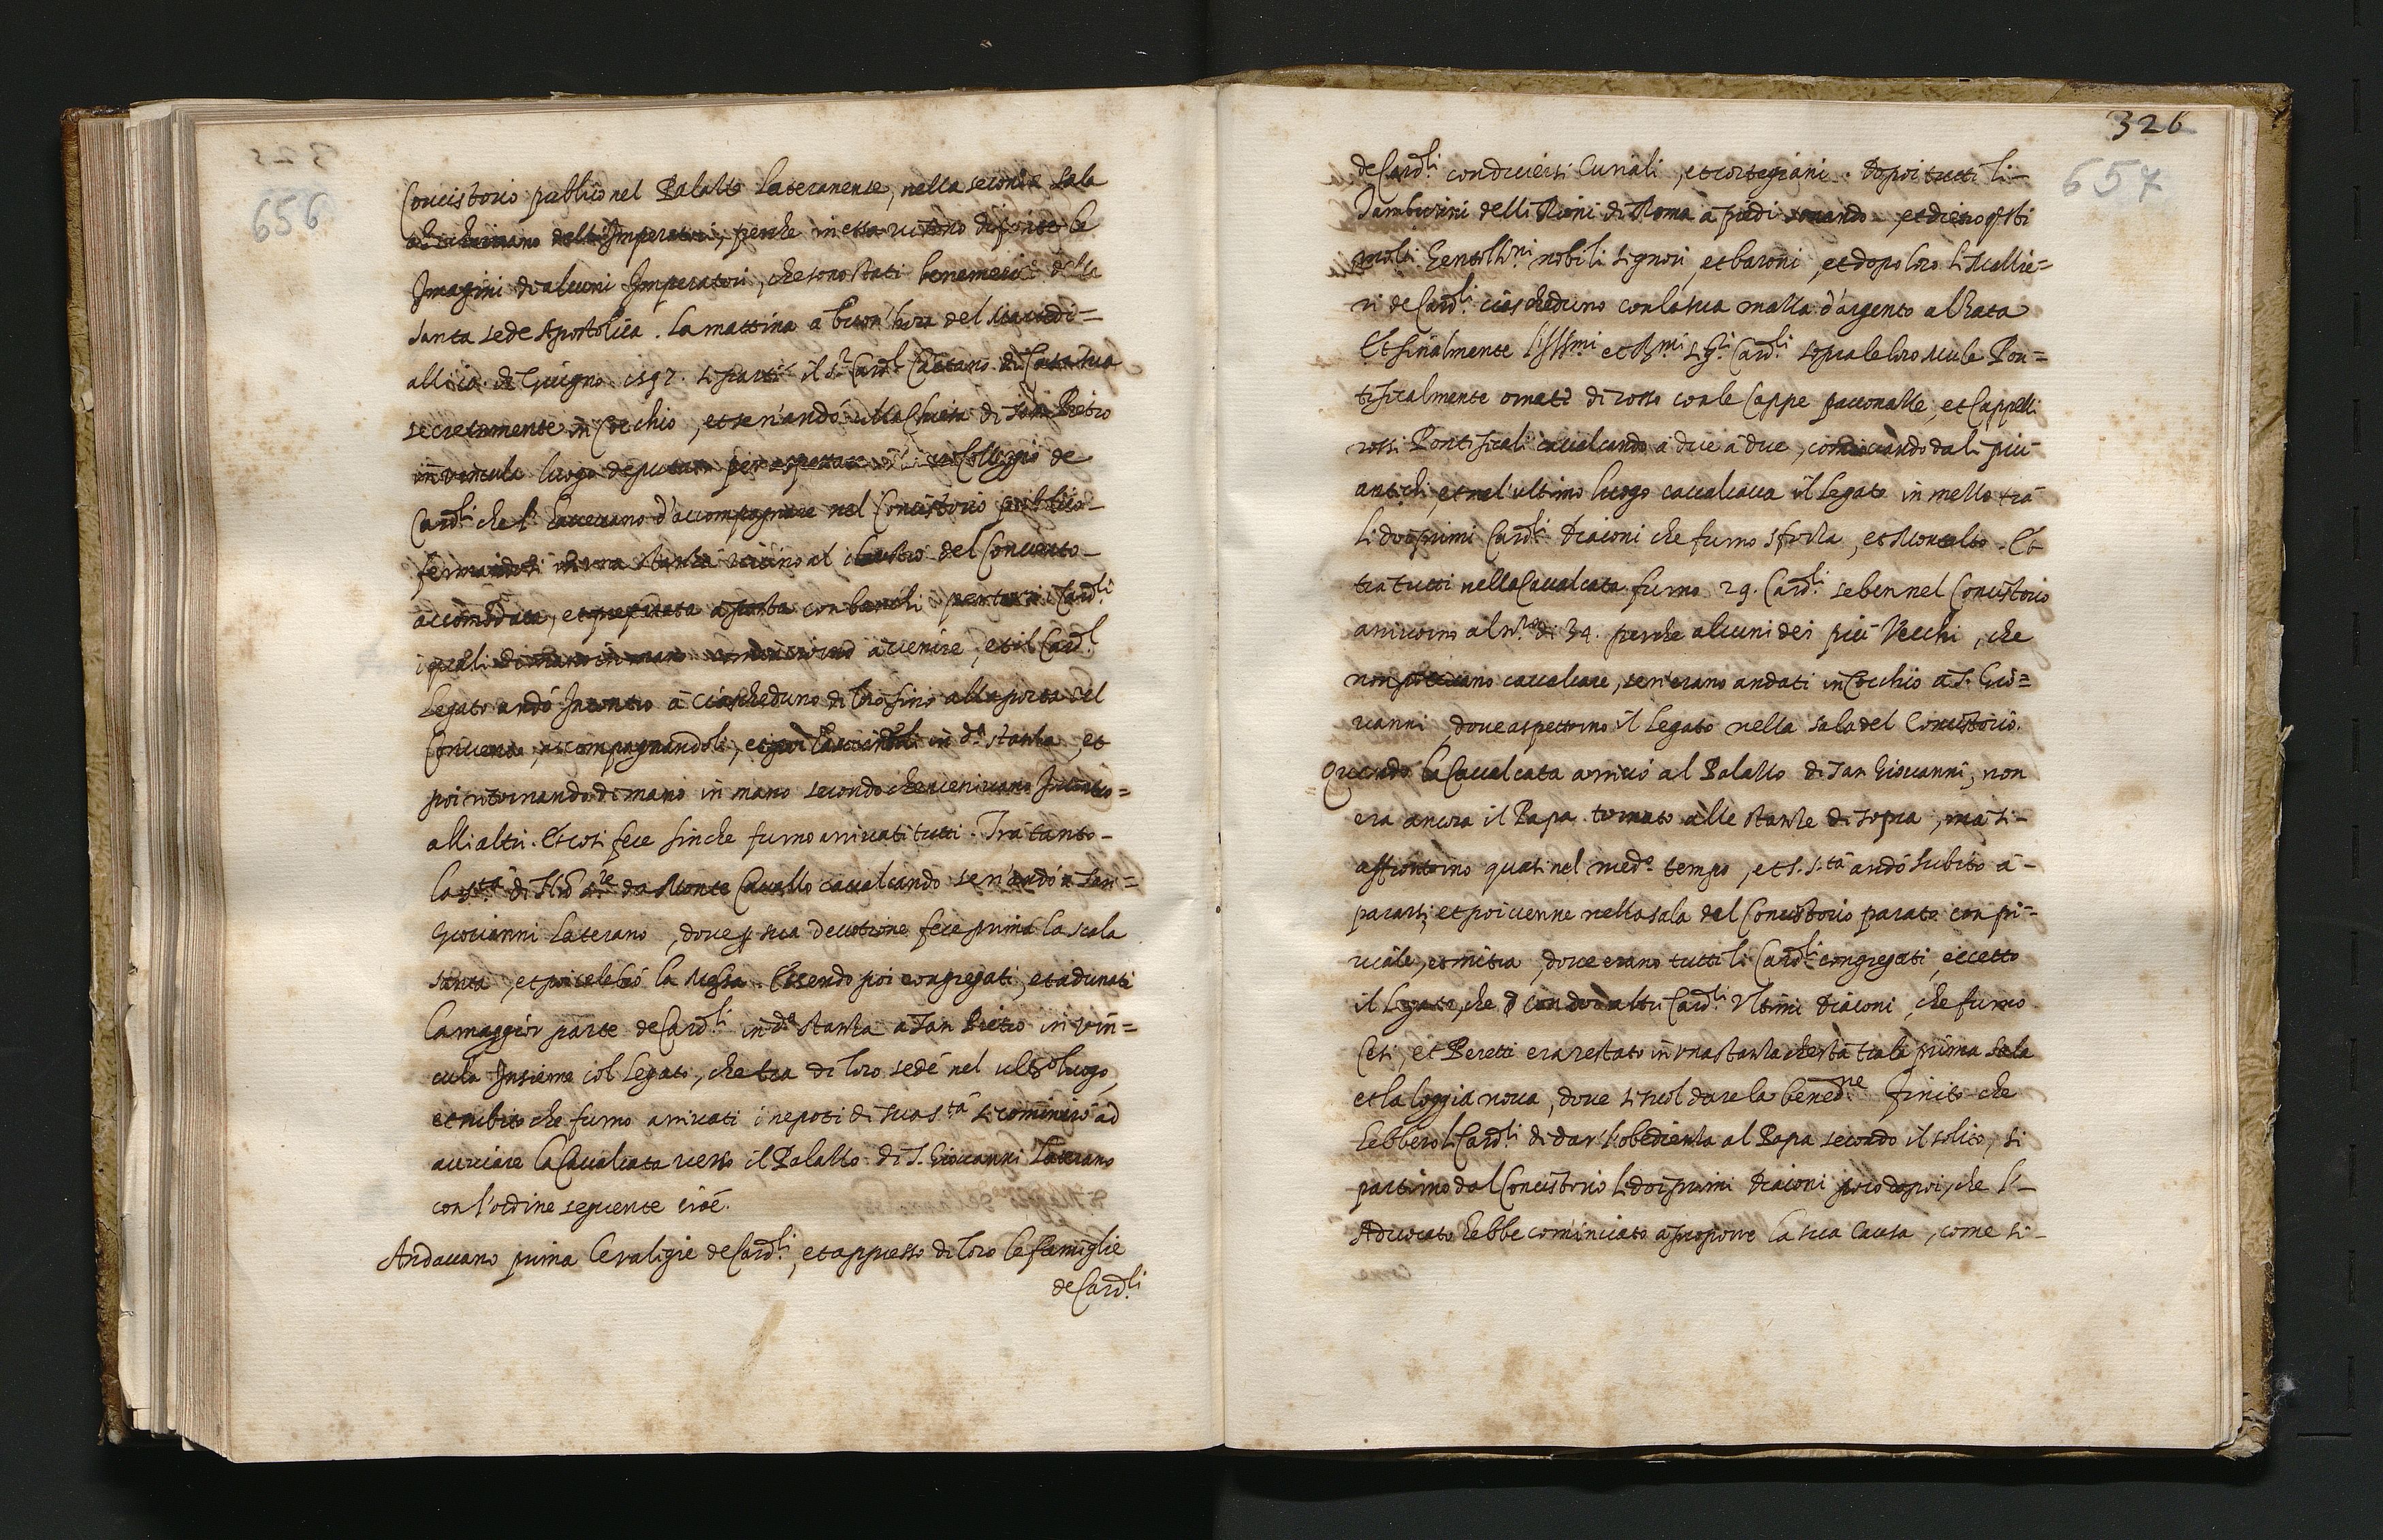 656
Concistorio publico nel Palazzo Lateranense, nella seconda sala
che chiamano delli Imperatori, perche in essa vi sono dipinte le
Imagini di alcuni Imperatori, che sono stati benemeriti della
santa sede Apostolica. La mattina à buon'hora del Marcedi=
alli di Giugno 1597. si partì il sr Cardl Caetano di Casa sua
secretamente in Cocchio, et se n'andò alla Chiesa di San Pietro
in vincula luogo deputato per aspettare il Collegio de
Cardli che l' haveuano d'accompagnare nel Concistorio publico
fermandosi in una stanza vicino al claustro del Convento
accommodata, et preparata a posta con banchi per tutti i Cardli
i quali di mano in mano cominciorno à venire, et il Cardl
Legato andò Incontro à ciascheduno di loro sino alla porta del
Convento, accompagnandoli, et poi lasciandoli in da stanza, et
poi ritornando di mano in mano secondo che venivano Incontro=
alli altri. Et così fece sinche furno arrivati tutti. Trà tanto
la Stà di N. Sre da Monte Cavallo cavalcando se n'andò à San=
Giovanni Laterano, dove p sua devotione fece prima la scala
santa, et poi celebrò la Messa. Essendo poi congregati, et adunati
la maggior parte de Cardli in da stanza a San Pietro in vin=
cula Insieme col Legato, che tra di loro sedè nel ulto luogo,
et subito che furno arrivati i nepoti di sua Stà si cominciò ad
avviare la Cavalcata verso il Palazzo di S. Giovanni Laterano
con l'ordine seguente cioè.
Andavano prima le valigie de Cardli, et appresso di loro le famiglie
de Cardli
326
657
de Cardli con diversi Curiali, et cortegiani. Dopoi tutti li
Tamburini delli Rioni di Roma à piedi sonando, et dietro qsti
molti Gentilhni nobili signori et baroni, et dopo loro li Mazzie=
ri de Cardli ciascheduno con la sua mazza d'argento alzata
Et finalmente l'Illmi et Rmi sgri Cardli sopra le loro Mule Pon=
tificalmente ornati di rosso con le Cappe paconazze, et Cappelli
rossi Pontificali cavalcando à due à due, cominciando dali più
antichi, et nel ultimo luogo cavalcava il Legato in mezzo trà
li doi primi Cardli Diaconi che furno Sforza, et Montalto. Et
tra tutti nella Cavalcata furno 29. Cardli seben nel Concistorio
arrivorno al no di 34. perche alcuni dei più Vecchi, che
non potevano cavalcare, se n'erano andati in Cocchio à S. Gio=
vanni, dove aspettorno il Legato nella sala del Concistorio.
Quando la Cavalcata arrivò al Palazzo di San Giovanni, non
era ancora il Papa tornato alle stanze di sopra, mà si
affrontorno quasi nel medo tempo, et S. Stà andò subito à
pararsi, et poi venne nella sala del Concistorio parato con pi=
viale, et mitra, dove erano tutti li Cardli congregati eccetto
il Legato, che con doi altri Cardli Ultimi Diaconi, che furno
Cesi, et Peretti era restato in una stanza che sta tra la prima sala
et la loggia nova, dove si suol dare la benedne finito che
hebbero li Cardli di dar l'obedienza al Papa secondo il solito, si
partirno dal Concistorio li doi primi Diaconi poco dopoi, che l'
Advocato hebbe cominciato à proporre la sua Causa, come si